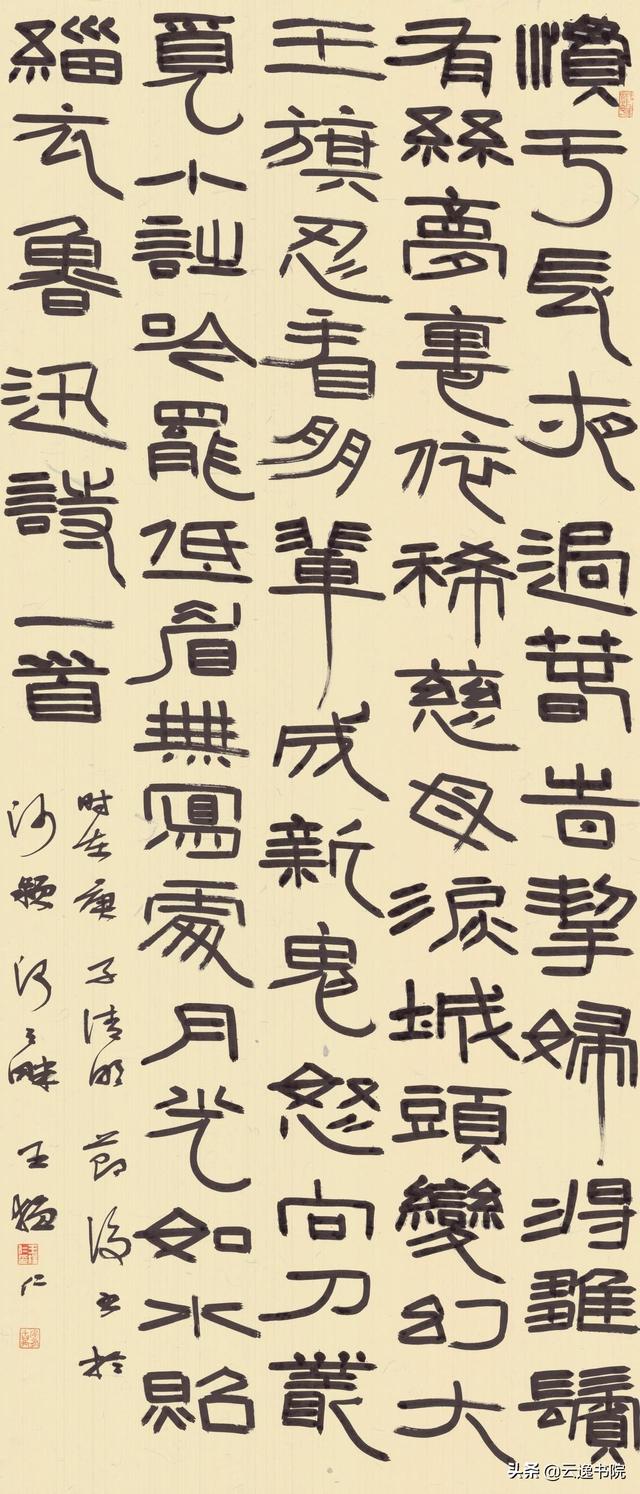 慣于長夜過萅時挈婦將雛鬢
有絲夢裏依稀慈母淚城頭變幻大
王旗忍看朋輩成新鬼怒向刀叢
覓小詩吟罷低眉無寫處月光如水照
緇衣魯迅詩一首
时在庚子清明节後书於
沙颍河之畔王猛仁
头条 @云逸书院